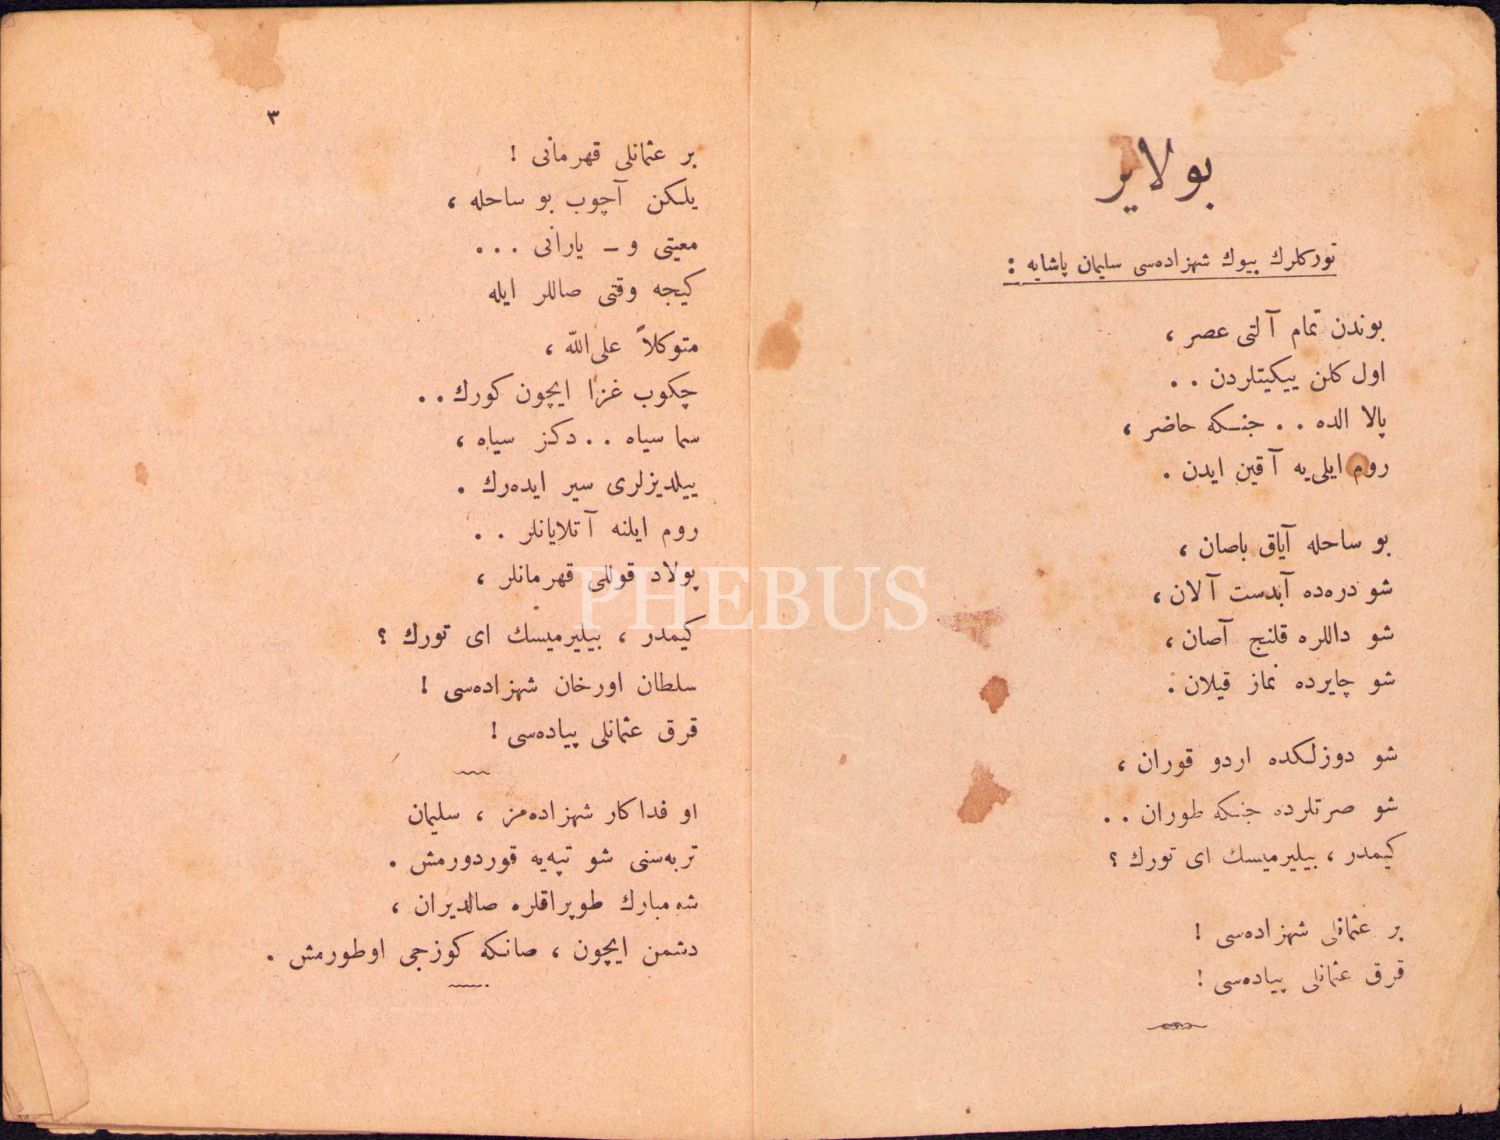 بولایر
تورکلرك بیوك شهزاده‌سی سلیمان پاشایه :
بوندن تمام آلتی عصر ،
اول کلن ییکیتلردن . .
پالا الده . . جنـکه حاضر ،
روم ایلی‌یه آقین ایدن .
بو ساحله آیاق باصان ،
شو دره‌ده آبدست آلان ،
شو داللره قلنج آصان ،
شو چایرده نماز قیلان .
شو دوزلکده اردو قوران ،
شو صرتلرده جنـکه طوران . .
کیمدر ، بیلیرمیسك ای تورك ؟
بر عثمانلی شهزاده‌سی !
قرق عثمانلی پیاده‌سی !
٣
بر عثمانلی قهرمانی !
یلـکن آچوب بو ساحله ،
معیتی و ـ یارانی . . .
کیجه وقتی صاللر ایله
متوکلاً علی‌الله ،
چکوب غزا ایچون کورك . .
سما سیاه . . دکز سیاه ،
ییلدیزلری سیر ایده‌رك .
روم ایلنه آتلایانلر . .
پولاد قوللی قهرمانلر ،
کیمدر ، بیلیرمیسك ای تورك ؟
سلطان اورخان شهزاده‌سی !
قرق عثمانلی پیاده‌سی !
او فداکار شهزاده‌مز ، سلیمان
تربه‌سنی شو تپه‌یه قوردورمش .
مبارك طوپراقلره صالدیران ،
دشمن ایچون ، صانکه کوزجی اوطورمش .
PHEBUS